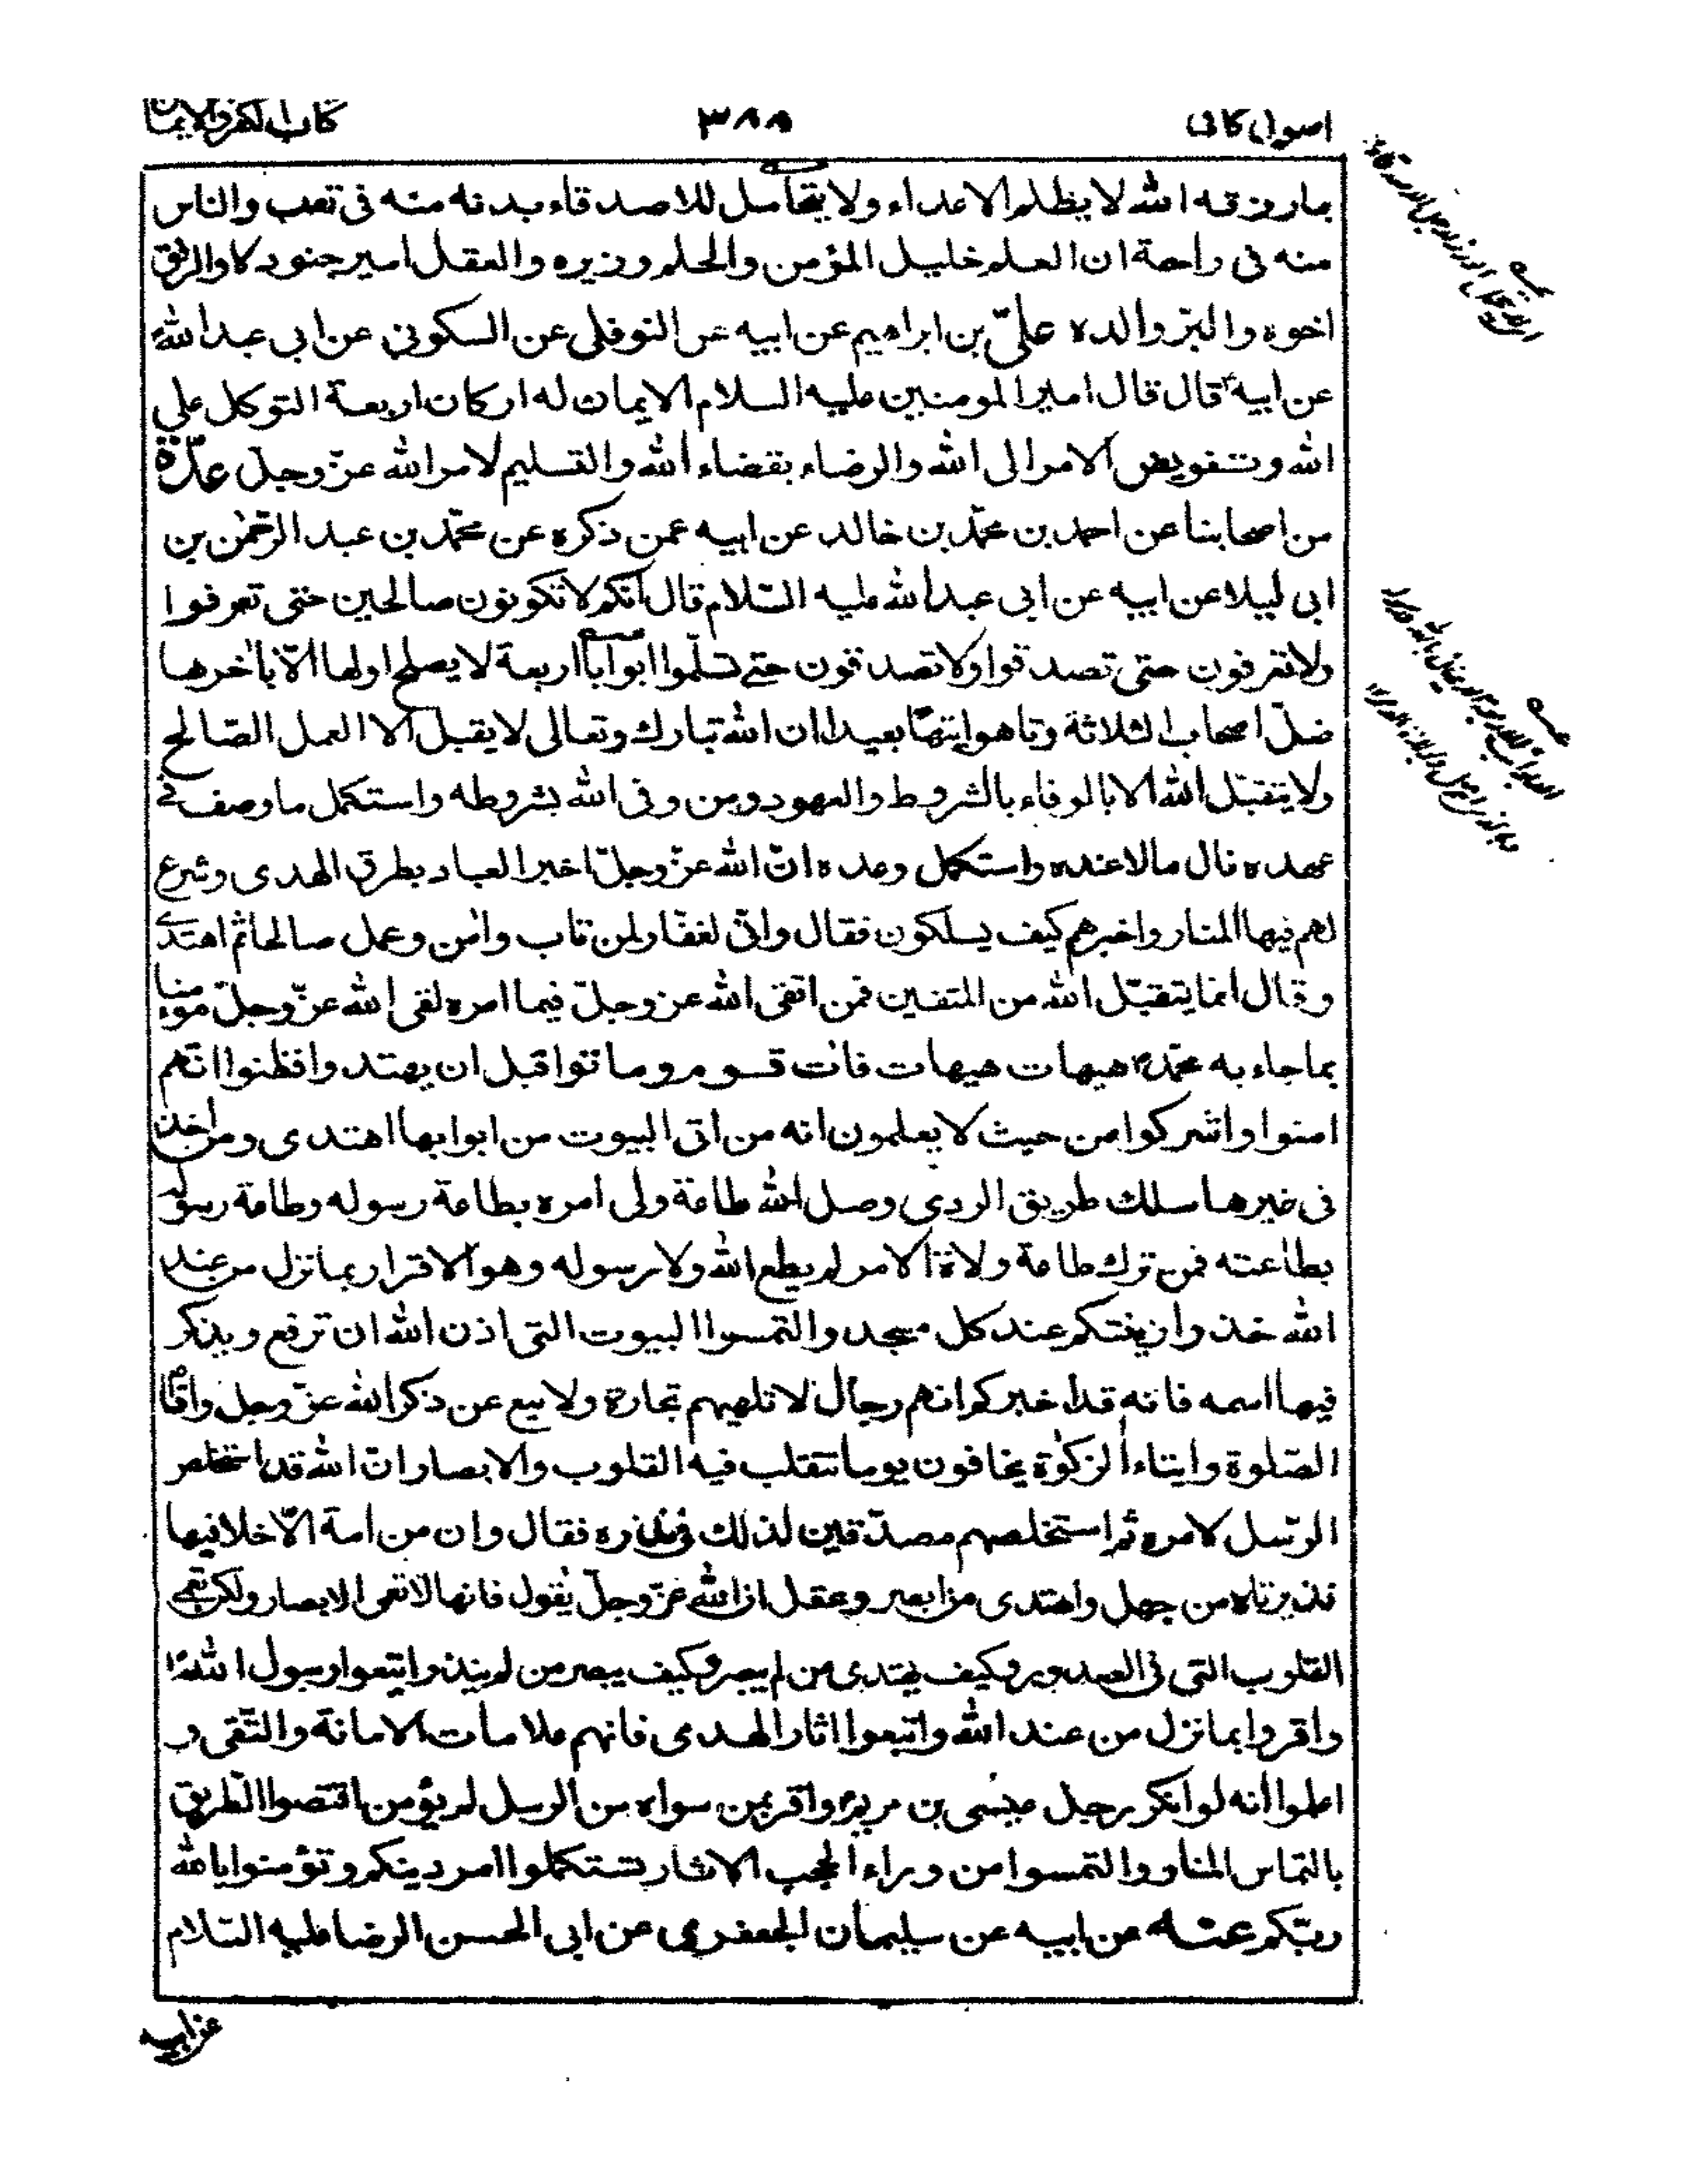 اصول كافى
٣٨٨
كتاب الكفر والايمان
بما رزقه الله لا يظلم الاعداء ولا يتحامل للاصدقاء بدنه منه فى تعب والناس
منه فى راحة ان العلم خليل المؤمن والحلم وزيره والعقل امير جنوده والرفق
اخوه والبرّ والده علىّ بن ابراهيم عن ابيه عن النوفلى عن السكونى عن ابى عبد الله
عن ابيه قال قال امير المومنين عليه السلام الايمان له اركان اربعة التوكل على
الله وتفويض الامر الى الله والرضاء بقضاء الله والتسليم لامر الله عزّ وجلّ عدّة
من اصحابنا عن احمد بن محمّد بن خالد عن ابيه عمن ذكره عن محمّد بن عبد الرّحمٰن بن
ابى ليلا عن ابيه عن ابى عبد الله عليه السّلام قال انّكم لا تكونون صالحين حتى تعرفوا
ولا تعرفون حتى تصدقوا ولا تصدقون حتى تسلّموا ابوابا اربعة لا يصلح اولها الّا باٰخرها
ضلّ اصحاب الثلاثة وتاهوا تيها بعيدا ان الله تبارك وتعالى لا يقبل الا العمل الصّالح
ولا يتقبّل الله الا بالوفاء بالشروط والعهود ومن وفى الله بشروطه واستكمل ما وصف فى
عهده نال مالا عنده واستكمل وعده انّ الله عزّ وجلّ اخبر العباد بطرق الهدى وشرع
لهم فيها المنار واخبرهم كيف يسلكون فقال وانّى لغفّار لمن تاب واٰمن وعمل صالحا ثم اهتدى
وقال انما يتقبّل الله من المتقين فمن اتقى الله عز وجلّ فيما امره لقى الله عزّ وجلّ مومنا
بما جاء به محمّد هيهات هيهات فات قوم وماتوا قبل ان يهتدوا فظنوا انّهم
امنوا واشركوا من حيث لا يعلمون انه من اتى البيوت من ابوابها اهتدى ومن اخذ
فى غيرها سلك طريق الردى وصل الله طاعة ولى امره بطاعة رسوله وطاعة رسوله
بطاعته فمن ترك طاعة ولاة الامر لم يطع الله ولا رسوله وهو الاقرار بما نزل من عند
الله خذوا زينتكم عند كل مسجد والتمسوا البيوت التى اذن الله ان ترفع ويذكر
فيها اسمه فانه قد اخبركم انهم رجال لا تلهيهم تجارة ولا بيع عن ذكر الله عزّ وجل واقام
الصّلوة وايتاء الزكوٰة يخافون يوما تتقلب فيه القلوب والابصار انّ الله قد استخلص
الرّسل لامره ثم استخلصهم مصدّقين لذلك فى نذره فقال وان من امة الّا خلا فيها
نذير تاه من جهل واهتدى من ابصر وعقل ان الله عزّ وجلّ يقول فانها لا تعمى الابصار ولكن تعمى
القلوب التى فى الصدور وكيف يهتدى من لم يبصر وكيف يبصر من لم ينذر اتبعوا رسول الله
واقروا بما نزل من عند الله واتبعوا اثار الهدى فانهم علامات الامانة والتّقى و
اعلموا انه لو انكر رجل عيسى بن مريم واقر بمن سواه من الرسل لم يؤمن اقتصوا الطريق
بالتماس المنار والتمسوا من وراء الحجب الاثار تستكملوا امر دينكم وتؤمنوا بالله
ربّكم عنه عن ابيه عن سليمان الجعفرى عن ابى الحسن الرضا عليه السّلام
عن ابيه